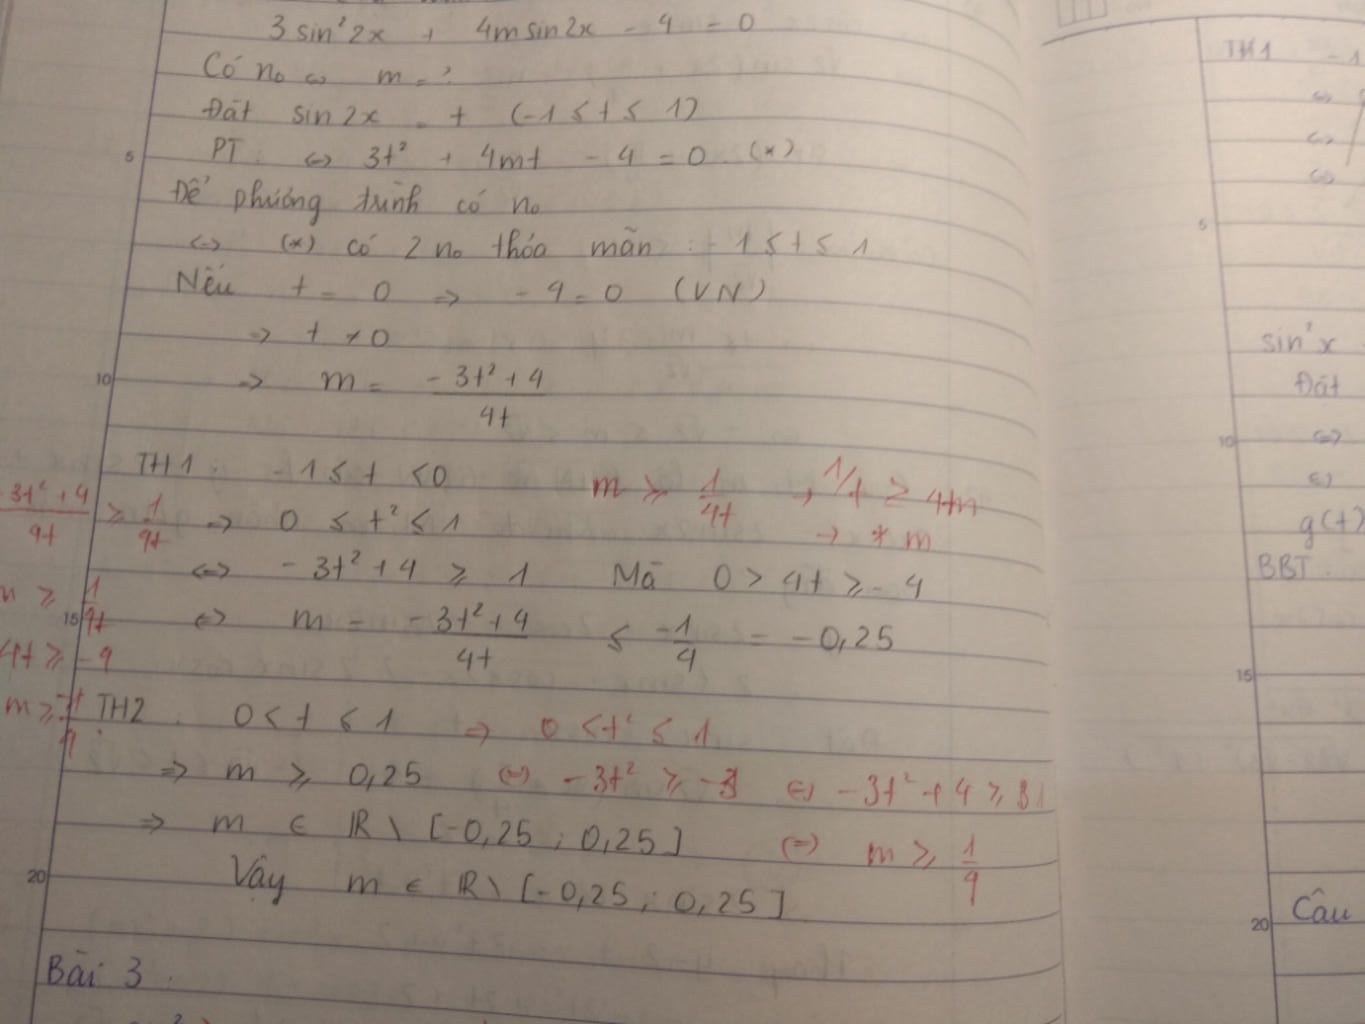 3sin²2x + 4msin2x - 4 = 0
Có n₀ ⇔ m = ?
Đặt sin2x = t (-1 ≤ t ≤ 1)
PT: ⇔ 3t² + 4mt - 4 = 0 (*)
5
Để phương trình có n₀
⇔ (*) có 2 n₀ thỏa mãn: -1 ≤ t ≤ 1
Nếu t = 0 ⇒ -4 = 0 (VN)
⇒ t ≠ 0
10
⇒ m = (-3t² + 4)/4t
TH1: -1 ≤ t < 0 m ≥ 1/4t → 1/t ≥ 4m
3t² + 4/4t ≥ 1/4t ⇒ 0 ≤ t² ≤ 1 → * m
⇔ -3t² + 4 ≥ 1 Mà 0 > 4t ≥ -4
m ≥ 1/4t
15
⇔ m = (-3t² + 4)/4t ≤ -1/4 = -0,25
4t ≥ -4
TH2: 0 < t ≤ 1 ⇒ 0 < t² ≤ 1
⇒ m ≥ 0,25 ⇔ -3t² ≥ -3 ⇔ -3t² + 4 ≥
⇒ m ∈ ℝ \ [-0,25; 0,25] ⇔ m ≥ 1/4
20
Vậy m ∈ ℝ \ [-0,25; 0,25]
Bài 3:
TH1 -1
⇔
⇔
⇔
5
sin²x
Đặt
10
⇔
⇔
g(t)
BBT
15
20
Câu